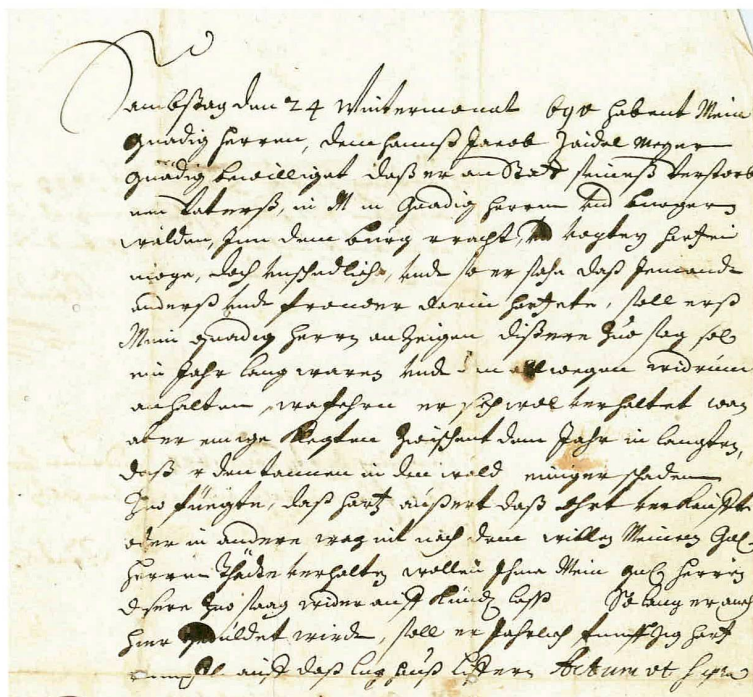 Sambstag den 24 Wintermonat 690 habent Mein
gnädig Herren, dem Hannß Jacob Zeidel Meyer
gnädig bewilliget daß er an Statt seineß verstorb
nen Vaterß, in M n Gnädig Herren und burgern
wälden, Jnn dem burg vogtey hartzen
möge, doch unschedlich, unde so er sähe daß Jemande
anderß unde frömder darin hartzete, soll erß
Mein gnädig Herrn anzeigen disere Zuo sag sol
ein Jahr lang waren unde wegen widrum
anhalten, wafehrn er sich wol verhaltet wan
aber einige klegten zwischent dem Jahr in langten,
daß er den tannen in den wäld einiger schaden
Zuo füegte, daß hartz aussert daß ohrt verkaufte
oder in andere weg nit nach dem willen Meinen Gn
Herren verhalten wollen Jhme Mein gn Herren
disere Zuo saag wider auff künden lass So lang er auch
hier geduldet wirde, soll er Jährlich fünffzig hartz
auff daß lug hauß lifern Actum ut supra